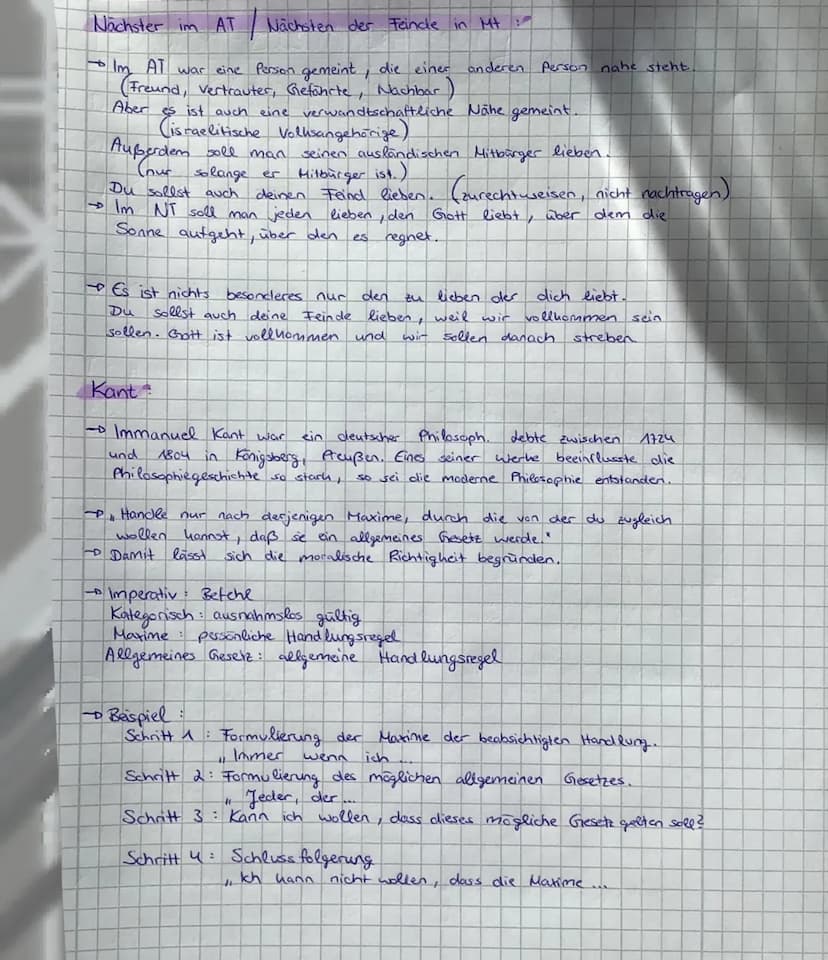 Nächster im AT / Nächsten der Feinde in Mt :
→ Im AT war eine Person gemeint, die einer anderen Person nahe steht.
(Freund, Vertrauter, Gefährte, Nachbar)
Aber es ist auch eine verwandtschaftliche Nähe gemeint.
(israelitische Volksangehörige)
Außerdem soll man seinen ausländischen Mitbürger lieben.
(nur solange er Mitbürger ist.)
Du sollst auch deinen Feind lieben. (zurechtweisen, nicht nachtragen)
→ Im NT soll man jeden lieben, den Gott liebt, über dem die
Sonne aufgeht, über den es regnet.
→ Es ist nichts besonderes nur den zu lieben der dich liebt.
Du sollst auch deine Feinde lieben, weil wir vollkommen sein
sollen. Gott ist vollkommen und wir sollen danach streben
Kant :
→ Immanuel Kant war ein deutscher Philosoph. Lebte zwischen 1724
und 1804 in Königsberg, Preußen. Eines seiner Werke beeinflusste die
Philosophiegeschichte so stark, so sei die moderne Philosophie entstanden.
→ „Handle nur nach derjenigen Maxime, durch die von der du zugleich
wollen kannst, daß sie ein allgemeines Gesetz werde."
→ Damit lässt sich die moralische Richtigkeit begründen.
→ Imperativ : Befehl
Kategorisch : ausnahmslos gültig
Maxime : persönliche Handlungsregel
Allgemeines Gesetz : allgemeine Handlungsregel
→ Beispiel :
Schritt 1 : Formulierung der Maxime der beabsichtigten Handlung.
„Immer wenn ich ...
Schritt 2 : Formulierung des möglichen allgemeinen Gesetzes.
„Jeder, der ...
Schritt 3 : Kann ich wollen, dass dieses mögliche Gesetz gelten soll?
Schritt 4 : Schlussfolgerung
„Ich kann nicht wollen, dass die Maxime ...